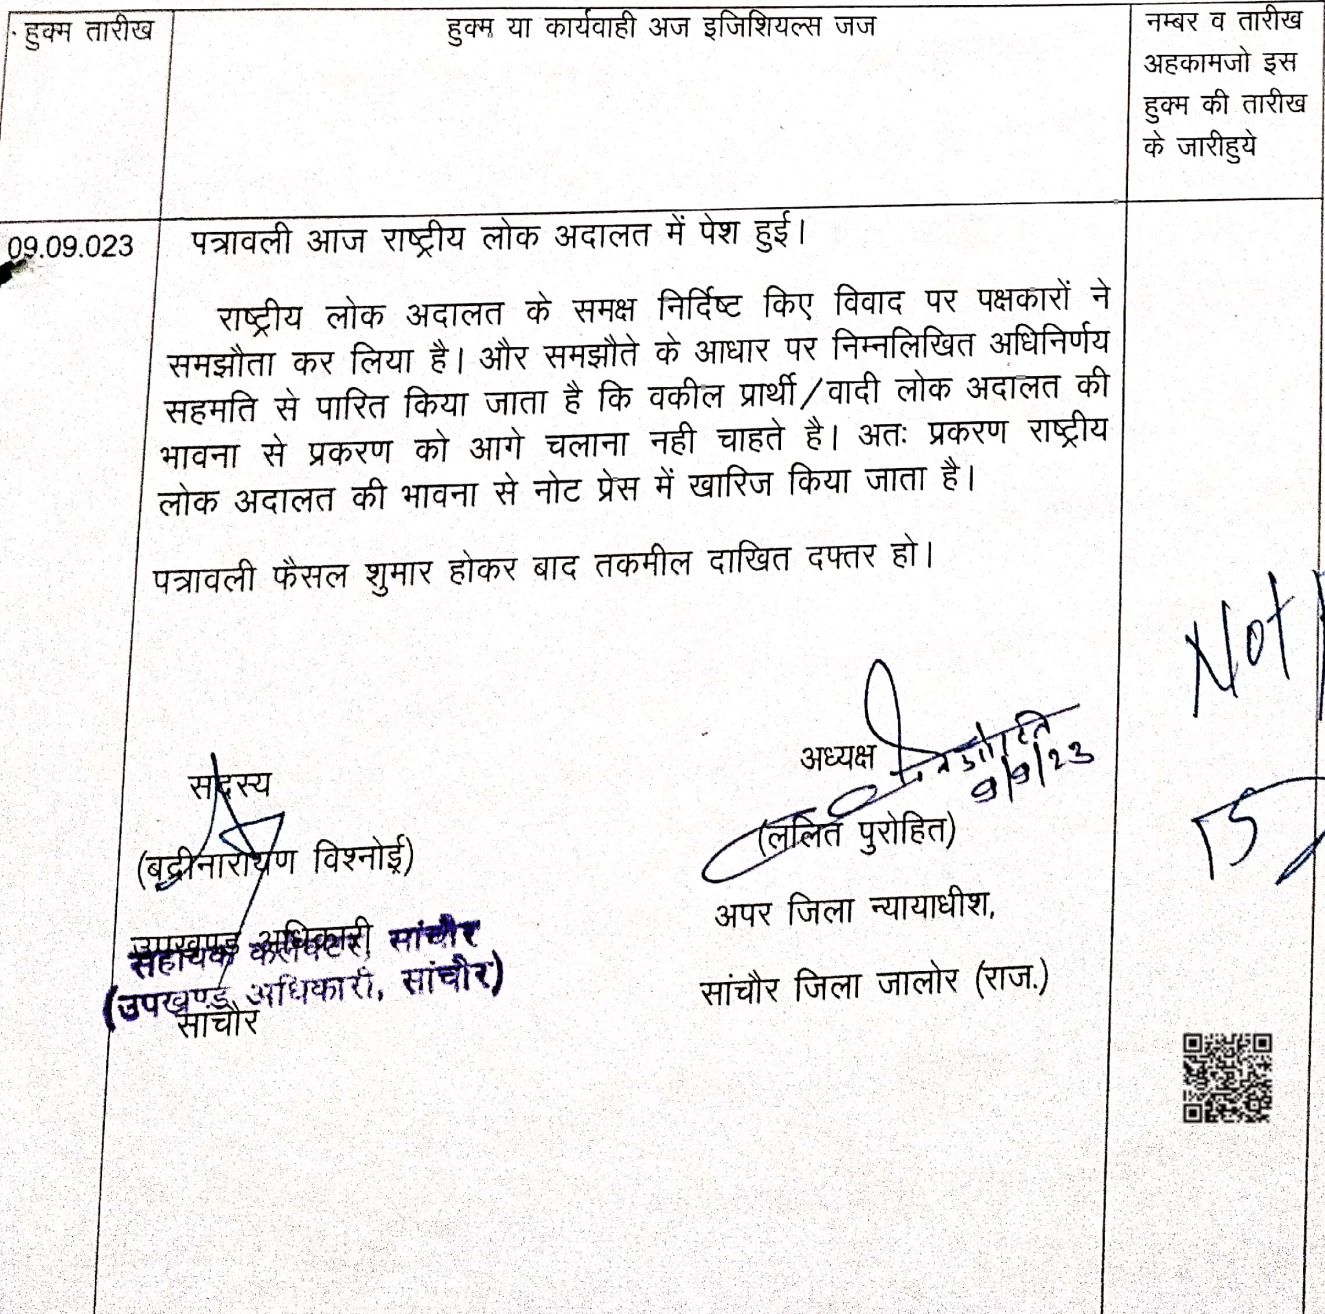 हुक्म तारीख
हुक्म या कार्यवाही अज इजिशियल्स जज
नम्बर व तारीख
अहकामजो इस
हुक्म की तारीख
के जारीहुये
09.09.023
पत्रावली आज राष्ट्रीय लोक अदालत में पेश हुई।
राष्ट्रीय लोक अदालत के समक्ष निर्दिष्ट किए विवाद पर पक्षकारों ने
समझौता कर लिया है। और समझौते के आधार पर निम्नलिखित अधिनिर्णय
सहमति से पारित किया जाता है कि वकील प्रार्थी/वादी लोक अदालत की
भावना से प्रकरण को आगे चलाना नही चाहते है। अतः प्रकरण राष्ट्रीय
लोक अदालत की भावना से नोट प्रेस में खारिज किया जाता है।
पत्रावली फैसल शुमार होकर बाद तकमील दाखित दफ्तर हो।
Not
सदस्य
(बद्रीनारायण विश्नोई)
उपखण्ड अधिकारी
सहायक कलेक्टर, सांचौर
(उपखण्ड अधिकारी, सांचौर)
सांचौर
अध्यक्ष
9/9/23
(ललित पुरोहित)
अपर जिला न्यायाधीश,
सांचौर जिला जालोर (राज.)